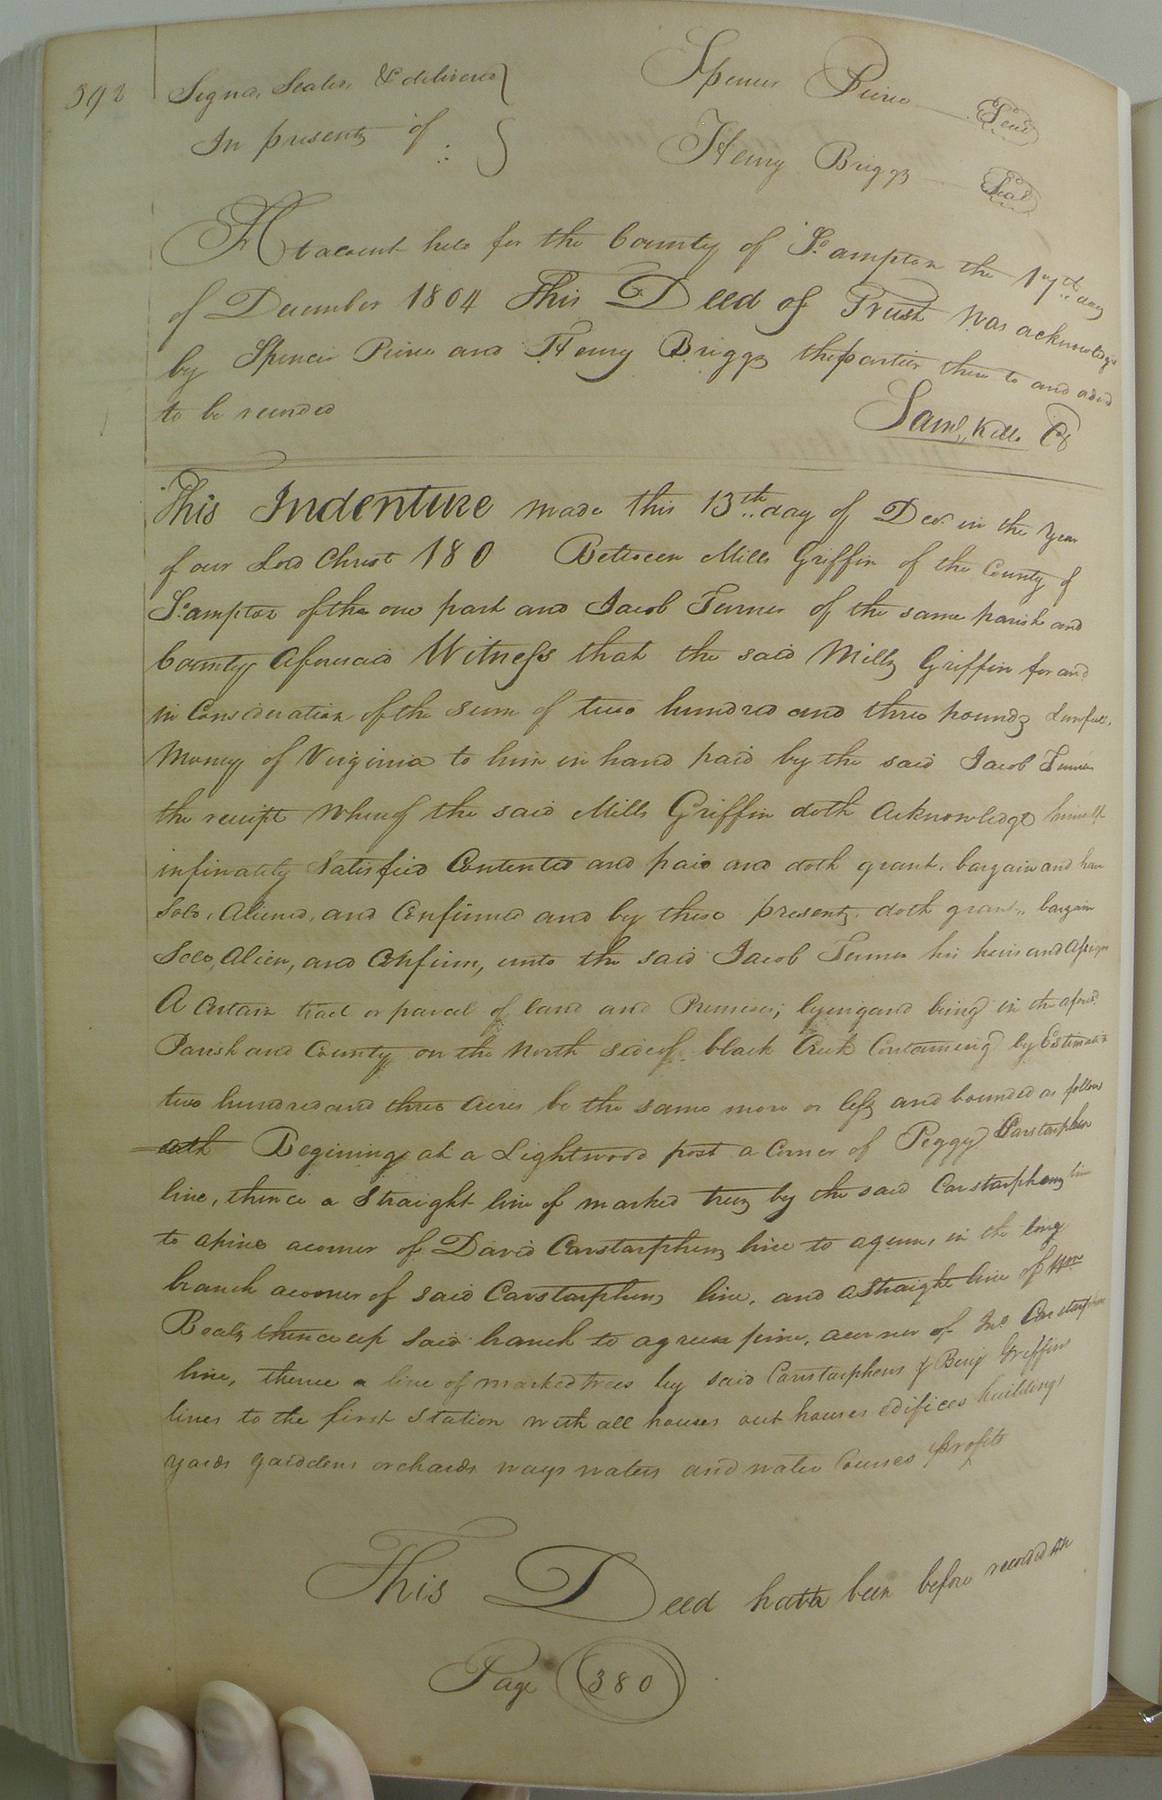 392
Signd, Sealed, & delivered
In presents of
Spencer Pierce Seal
Henry Briggs Seal
At a Court held for the County of So. ampton the 17th day
of December 1804 This Deed of Trust was acknowledge
by Spencer Pierce and Henry Briggs the parties there to and ordd
to be recorded
Saml. Kello Ck
This Indenture made this 13th day of Decr. in the year
of our Lord Christ 180 Between Mills Griffin of the County of
So. ampton of the one part and Jacob Turner of the same parish and
County Aforesaid Witness that the said Mills Griffin for and
in Consideration of the sum of two hundred and three pounds Lawfull
Money of Virginia to him in hand paid by the said Jacob Turner
the receipt whereof the said Mills Griffin doth Acknowledge himself
infinately Satisfied Contented and paid and doth grant, bargain and have
Sold, Aliened, and Confirmed and by these presents, doth grant, bargain
Sell, Alien, and Confirm, unto the said Jacob Turner his heirs and Assigns
A Certain tract or parcel of land and Premeses; lying and being in the aforesd.
Parish and County on the North side of black Creek Containing by Estimation
two hundred and three Acres be the same more or less and bounded as follows
Begining at a Lightwood post a Corner of Peggy Carstarphen
line, thence a Straight line of marked trees by the said Carstarphens line
to a pine a corner of David Carstarphens line to a gum, in the long
branch a corner of said Carstarphens line, and a straight line of
Beats thence up said branch to a green pine, a corner of Jno. Carstarphens
line, thence a line of marked trees by said Carstarphens & Benj Griffins
lines to the first Station with all houses out houses edifices buildings
yards gardens orchards ways waters and water Courses profits
This Deed hath been before recorded in
Page 380